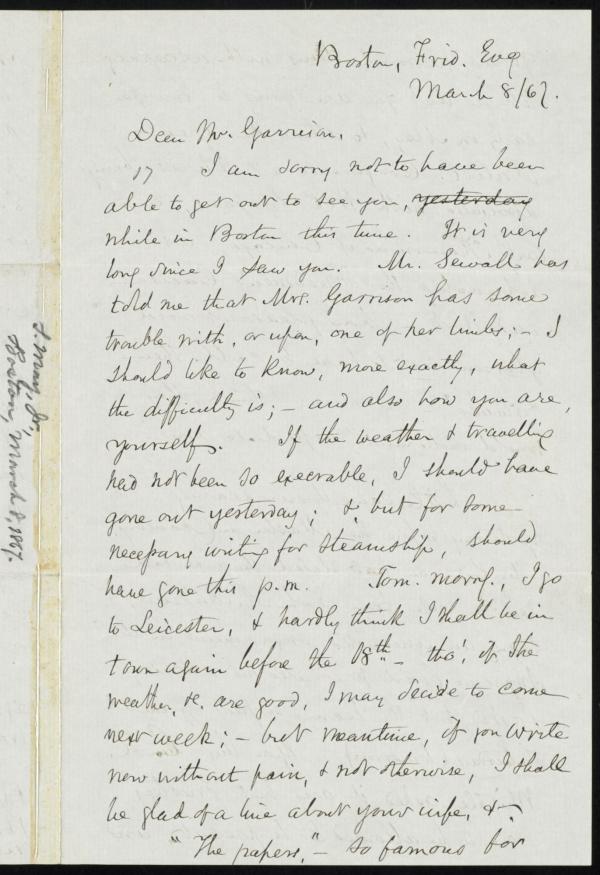 Boston, Frid. Evg
March 8/67.
Dear Mr. Garrison,
17 I am sorry not to have been
able to get out to see you, yesterday
while in Boston this time. It is very
long since I saw you. Mr. Sewall has
told me that Mrs. Garrison has some
trouble with, or upon, one of her limbs; – I
should like to know, more exactly, what
the difficulty is; – and also how you are,
yourself. If the weather & travelling
had not been so execrable, I should have
gone out yesterday; &, but for some
necessary writing for steamship, should
have gone this p.m. Tom. morng., I go
to Leicester, & hardly think I shall be in
town again before the 18th – tho', if the
weather, &c. are good, I may decide to come
next week; – but meantime, if you write
now without pain, & not otherwise, I shall
be glad of a line about your wife, &c.
"The papers," – so famous for
S. May, Jr,
Boston, March 8, 1867.